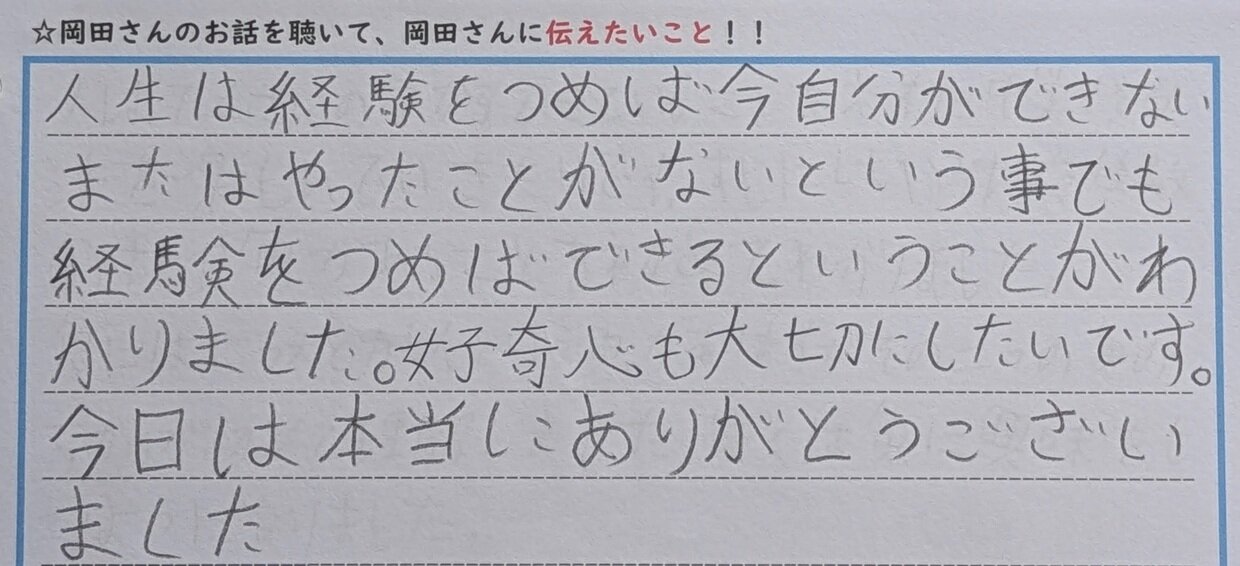 ☆岡田さんのお話を聴いて、岡田さんに伝えたいこと！！
人生は経験をつめば今自分ができない
またはやったことがないという事でも
経験をつめばできるということがわ
かりました。好奇心も大切にしたいです。
今日は本当にありがとうございい
ました